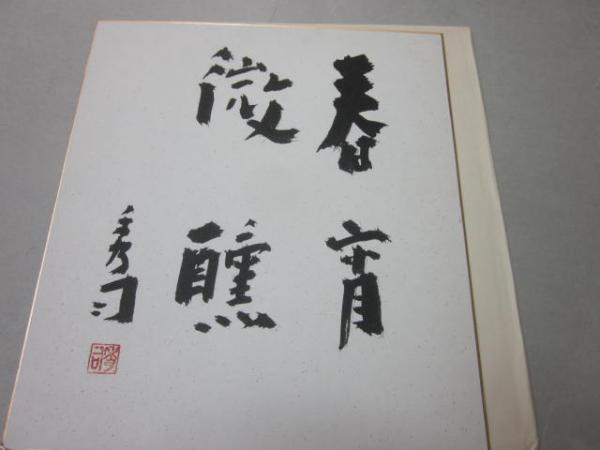 春宵
微醺
秀司